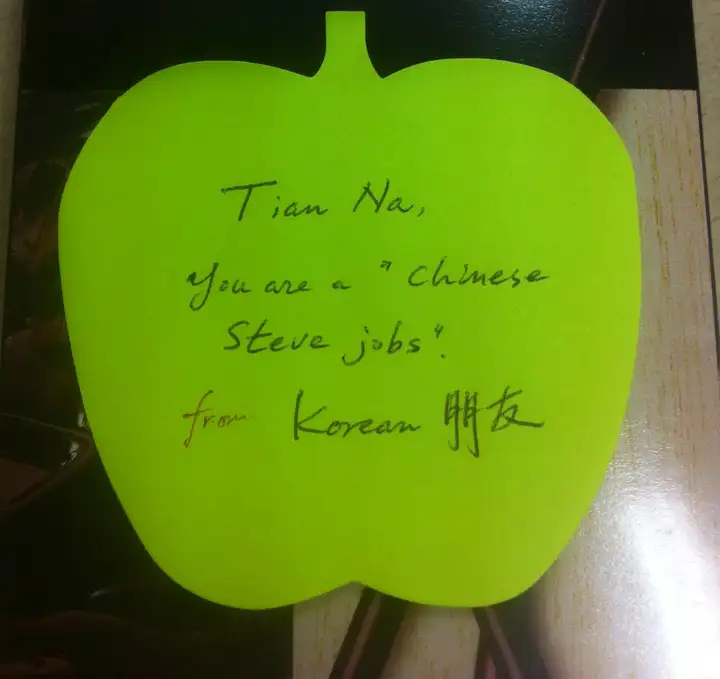 Tian Na,
You are a "Chinese
Steve jobs".
from Korean 朋友